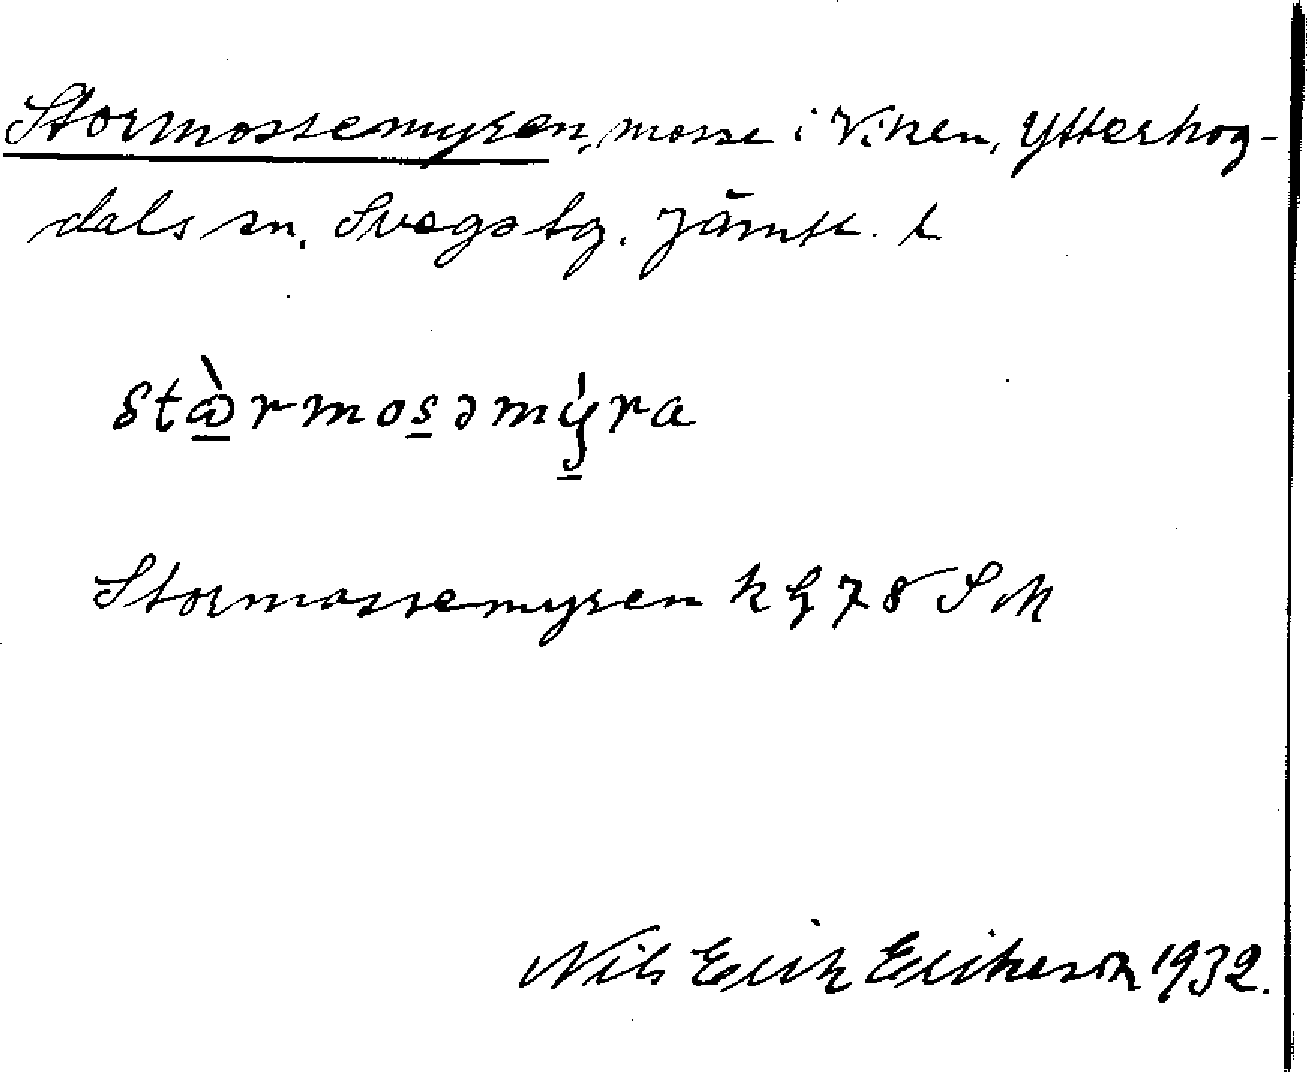 Stormossemyren, mosse i Viken, Ytterhog-
dals sn, Svegs tg. Jämtl. l
stàrmosəmýra
Stormossemyren k G 78 S M
Nils Erik Erikeson 1932.